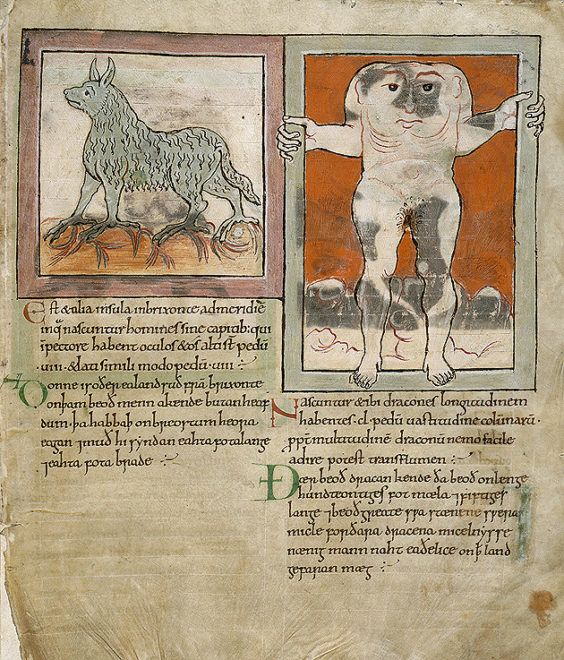 Est & alia insula inbrixonte admeridiē
inq̄ nascuntur homines sine capitib: qui
ipectore habent oculos & os alti st pedū
·viii· & lati simili modo pedū ·viii·
Ðonne is oðer ealand suð frā brixonte
onþam beoð menn akende butan heaf
dum· þa habbaþ onbreostum heora
eagan ⁊ muð hi syndan eahta fota lange
⁊ eahta fota brade
Nascuntur & ibi dracones longitudinem
habentes ·cl· pedū uastitudine colūnarū·
ꝓpt multitudinē draconū nemo facile
adire potest transflumen
Ðær beoð dracan kende ða beoð onlenge
hundteontiges fot mæla ⁊ fiftiges
lange ⁊ beoð greate swa stænene sweras
micle forðara dracena micelnysse
nænig mann naht eaðelice on ꝥ land
gefaran mæg